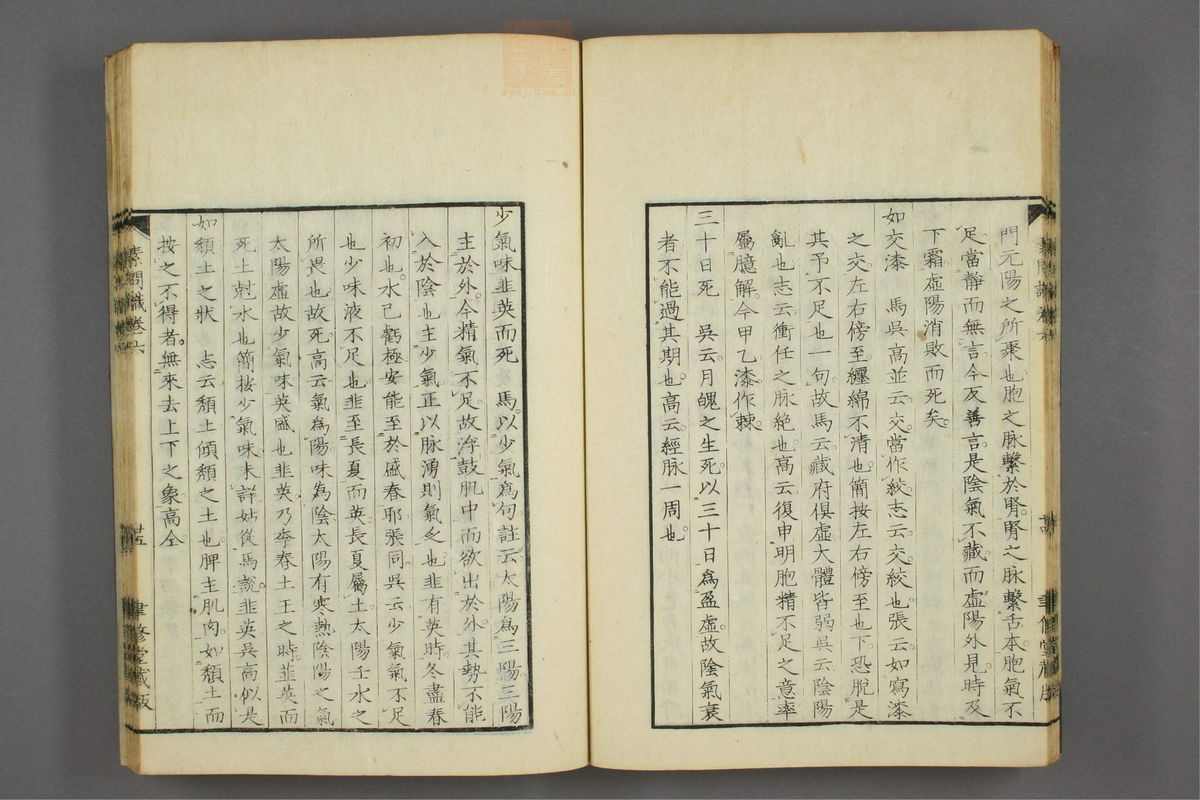 門元陽之所聚也胞之脉繫於腎腎之脉繫舌本胞氣不
足當靜而無言今反善言是陰氣不藏而虛陽外見時及
下霜虛陽消敗而死矣
如交漆 馬吳高並云交當作絞志云交絞也張云如寫漆
之交左右傍至纏綿不清也簡按左右傍至也下恐脫是
其予不足也一句故馬云藏府俱虛大體皆弱吳云陰陽
亂也志云衝任之脉絶也高云復申明胞精不足之意率
屬臆解今甲乙漆作棘
三十日死 吳云月魄之生死以三十日爲盈虛故陰氣衰
者不能過其期也高云經脉一周也
少氣味韭英而死 馬以少氣爲句註云太陽爲三陽三陽
主於外今精氣不足故浮鼓肌中而欲出於外其勢不能
入於陰也主少氣正以脉湧則氣乏也韭有英時冬盡春
初也水已虧極安能至於盛春耶張同吳云少氣氣不足
也少味液不足也韭至長夏而英長夏屬土太陽壬水之
所畏也故死高云氣爲陽味爲陰太陽有寒熱陰陽之氣
太陽虛故少氣味英盛也韭英乃季春土王之時韭英而
死土尅水也簡按少氣味未詳姑從馬說韭英吳高似是
如頹土之狀 志云頹土傾頹之土也脾主肌肉如頹土而
按之不得者無來去上下之象高仝
素問識卷六
廿五
聿修堂藏板